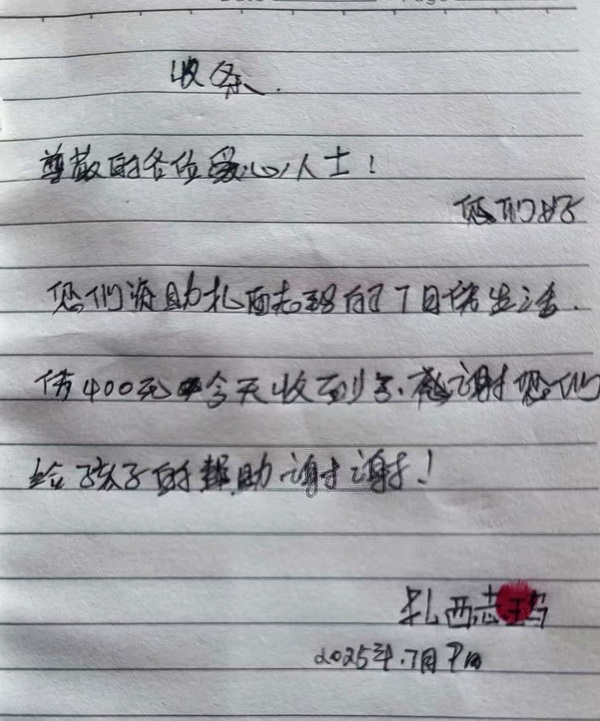 收条.
尊敬的各位爱心人士!
您们好
您们资助扎西志玛的7月份生活.
费400元今天收到了.感谢您们
给孩子的帮助谢谢!
扎西志玛
2025年.7月9日